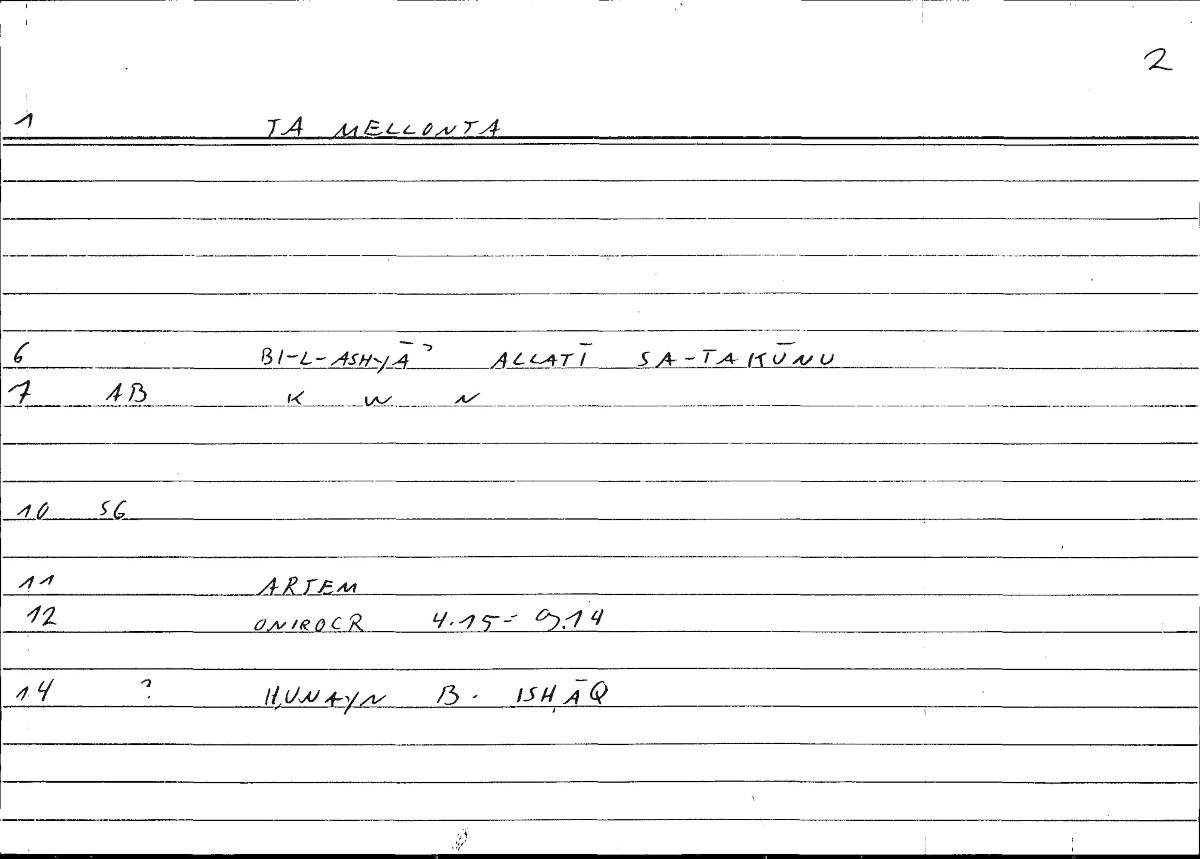 2
1 TA MELLONTA
6 BI-L-ASHYĀʾ ALLATĪ SA-TAKŪNU
7 AB K W N
10 SG
11 ARTEM
12 ONIROCR 4.15 = 9.14
14 ? ḤUNAYN B. ISḤĀQ